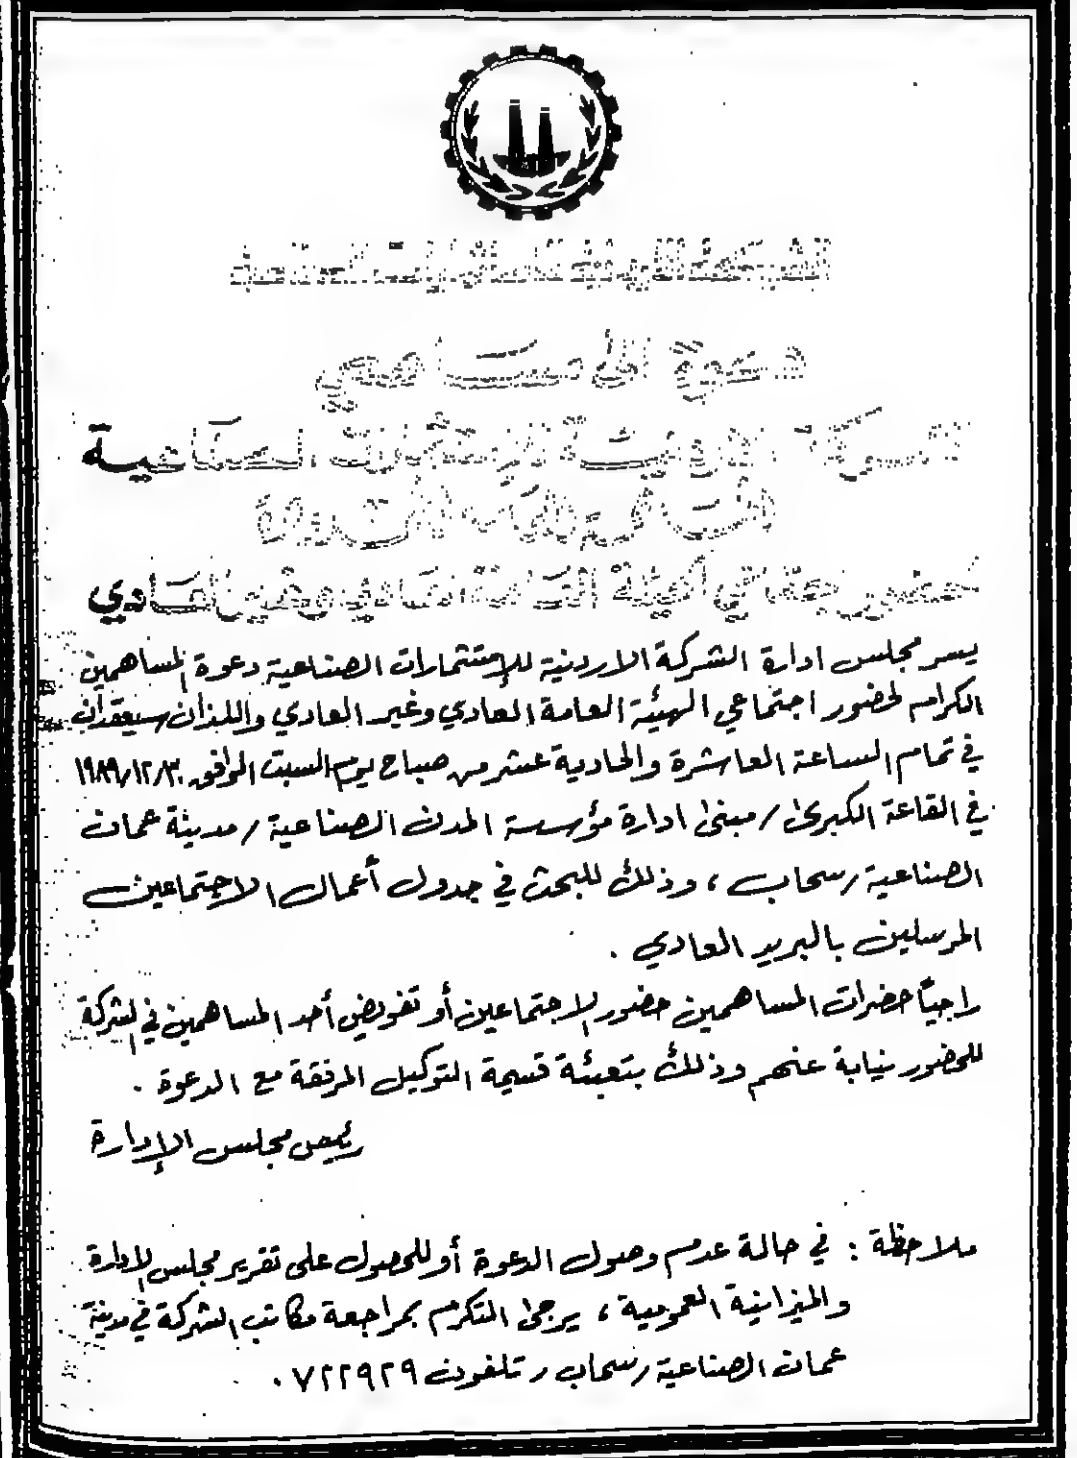 دعوة الى مساهمي
الشركة الاردنية للإستثمارات الصناعية
المساهمة المحدودة
لحضور اجتماعي الهيئة العامة العادي وغير العادي
يسر مجلس ادارة الشركة الاردنية للإستثمارات الصناعية دعوة المساهمين
الكرام لحضور اجتماعي الهيئة العامة العادي وغير العادي واللذان سيعقدان
في تمام الساعة العاشرة والحادية عشر من صباح يوم السبت الموافق ١٩٨٩/١٢/٣٠
في القاعة الكبرى / مبنى ادارة مؤسسة المدن الصناعية / مدينة عمان
الصناعية / سحاب ، وذلك للبحث في جدول أعمال الاجتماعين
المرسلين بالبريد العادي .
راجياً حضرات المساهمين حضور الاجتماعين أو تفويض أحد المساهمين في الشركة
للحضور نيابة عنهم وذلك بتعبئة قسيمة التوكيل المرفقة مع الدعوة .
رئيس مجلس الإدارة
ملاحظة : في حالة عدم وصول الدعوة أو للحصول على تقرير مجلس الادارة
والميزانية العمومية ، يرجى التكرم بمراجعة مكاتب الشركة في مدينة
عمان الصناعية / سحاب / تلفون ٧٢٢٩٢٩ .